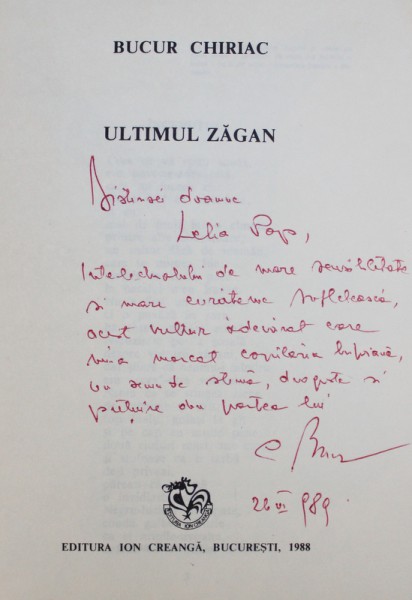 BUCUR CHIRIAC
ULTIMUL ZĂGAN
Distinsei doamne
Lelia Pop,
Intelectualului de mare sensibilitate
și mare curățenie sufletească,
acest vultur adevărat care
mi-a marcat copilăria
un semn de stimă, dragoste și
prețuire din partea lui
26 VI 989
EDITURA ION CREANGĂ
EDITURA ION CREANGĂ, BUCUREȘTI, 1988